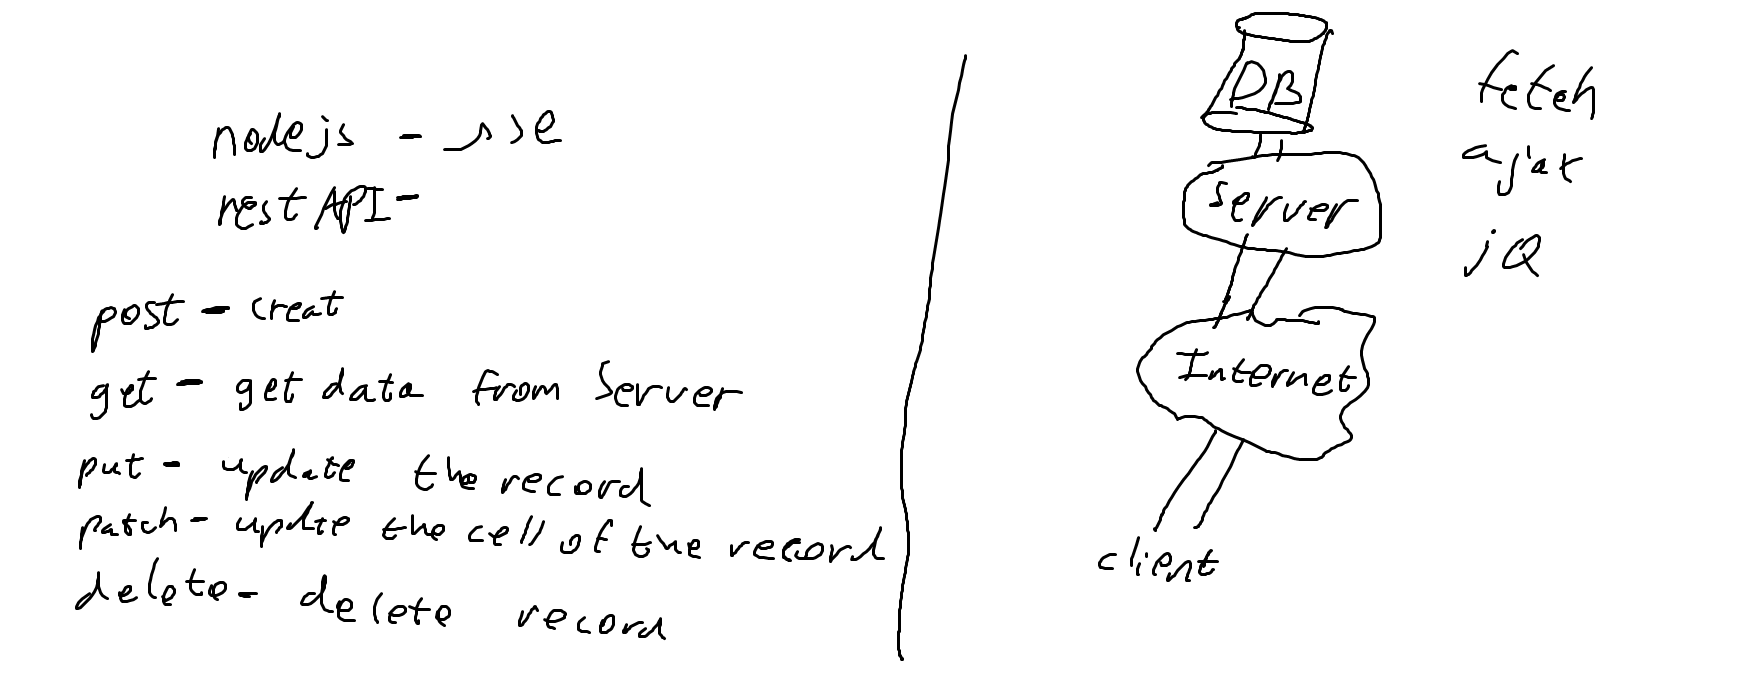 nodejs - sse
rest API -
post - creat
get - get data from Server
put - update the record
patch - updte the cell of the record
delete - delete record
DB
Server
Internet
client
fetch
ajax
jQ